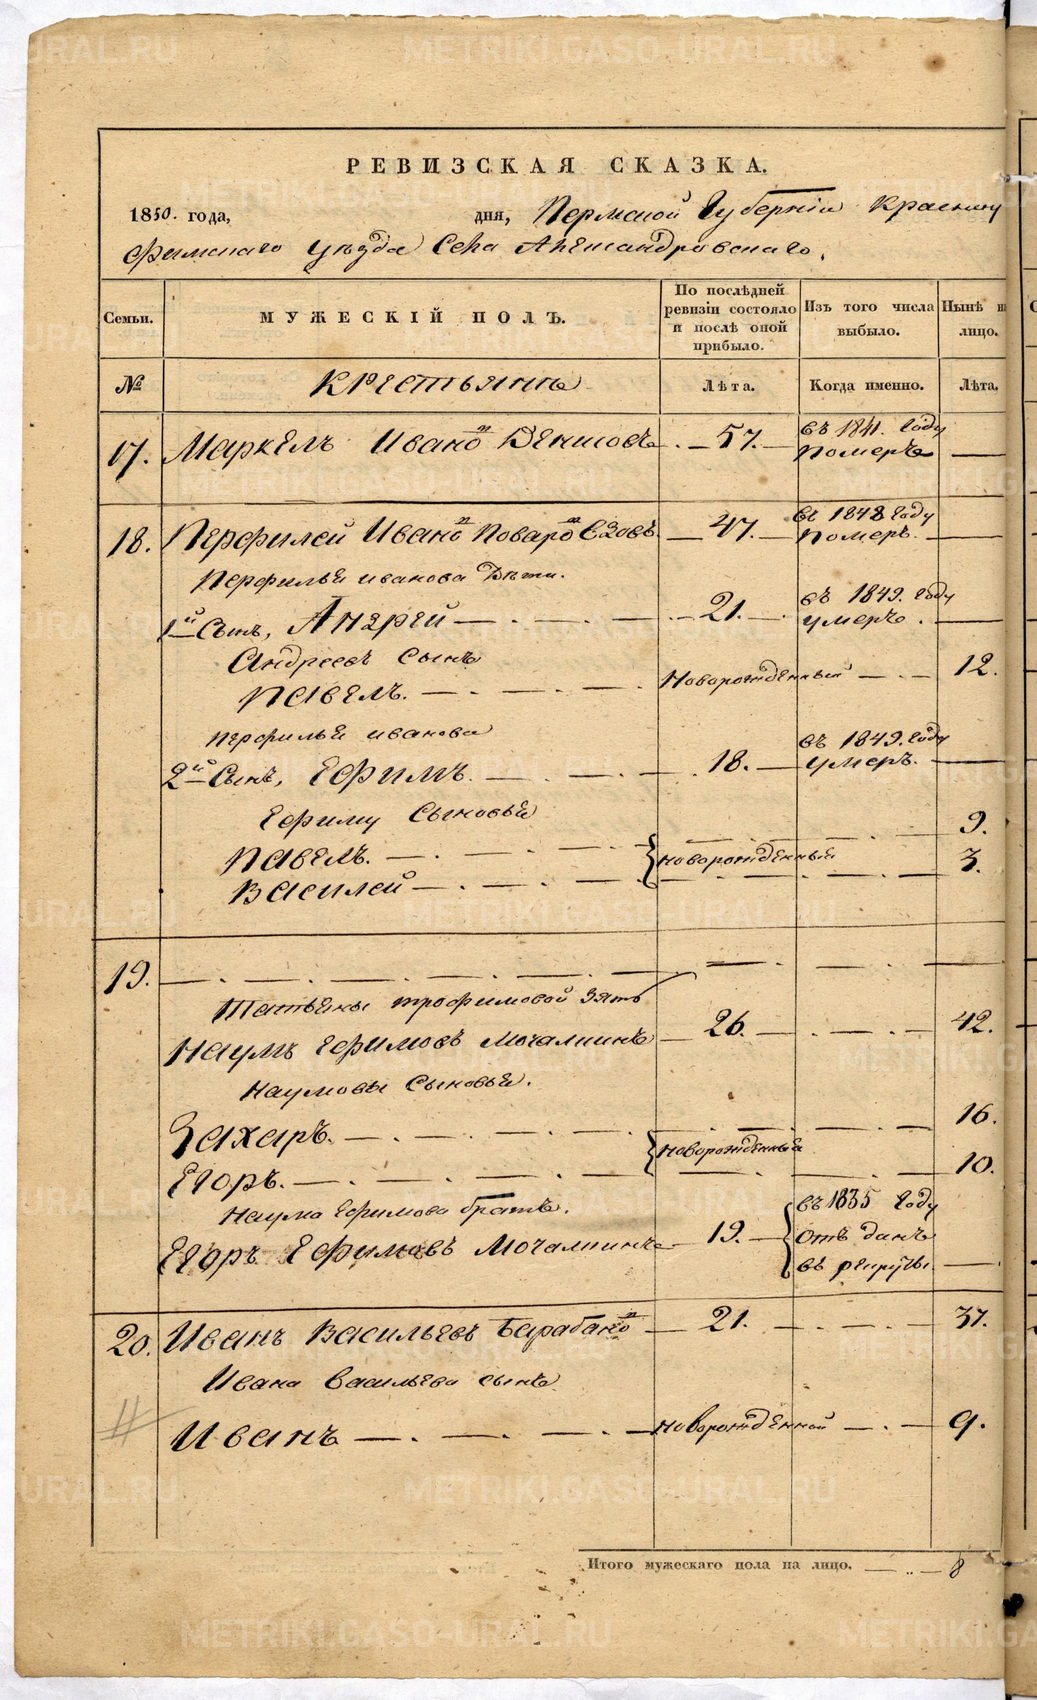 РЕВИЗСКАЯ СКАЗКА.
1850. года, дня, Пермской Губерніи Красноу
фимскаго уѣзда Села Александровскаго.
Семьи. МУЖЕСКІЙ ПОЛЪ. По послѣдней ревизіи состояло и послѣ оной прибыло. Изъ того числа выбыло. Нынѣ на лицо.
№ Крестьянѣ Лѣта. Когда именно. Лѣта.
17. Маркелъ Ивановъ Денисовъ 57. въ 1841. году померъ —
18. Перфилей Ивановъ Поваровъ 47. въ 1848 году померъ. —
Перфилья Иванова Дѣти.
1й Сынъ, Андрей 21. въ 1849. году умеръ. —
Андреевъ сынъ
Павелъ. Новорожденный 12.
Перфилья Иванова
2й Сынъ, Ефимъ. 18. въ 1849. году умеръ. —
Ефиму Сыновья
Павелъ. новорожденныи 9.
Василей 3.
19.
Татьяны Трофимовой Зять
Наумъ Ефимовъ Мочалкинъ 26. 42.
Наумовы Сыновья.
Захаръ. новорожденныи 16.
Егоръ. 10.
Наума Ефимова братъ.
Егоръ Ефимовъ Мочалкинъ 19. въ 1835 году отъ данъ въ рекруты. —
20. Иванъ Васильевъ Барабановъ 21. 37.
Ивана Васильева сынъ
Иванъ новорожденной 9.
Итого мужескаго пола на лицо. 8
METRIKI.GASO-URAL.RU